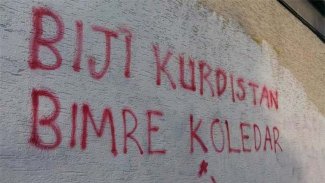 BIJÎ KURDISTAN
BIMRE KOLEDAR